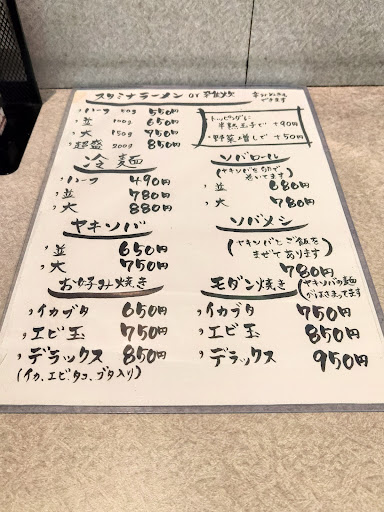 スタミナラーメン or
できます
・ハーフ 550円
・並 100g 650円
・大 150g 750円
・超盛 200g 850円
トッピングに
半熟玉子で +90円
・野菜増しで +50円
冷麺
・ハーフ 490円
・並 780円
・大 880円
ソバロール
(ヤキソバを卵で
巻いてます)
・並 680円
・大 780円
ヤキソバ
・並 650円
・大 750円
ソバメシ
(ヤキソバとご飯を
まぜてあります)
780円
お好み焼き
・イカブタ 650円
・エビ玉 750円
・デラックス 850円
(イカ、エビ、タコ、ブタ入り)
モダン焼き (ヤキソバの麺
がはさまってます
・イカブタ 750円
・エビ玉 850円
・デラックス 950円